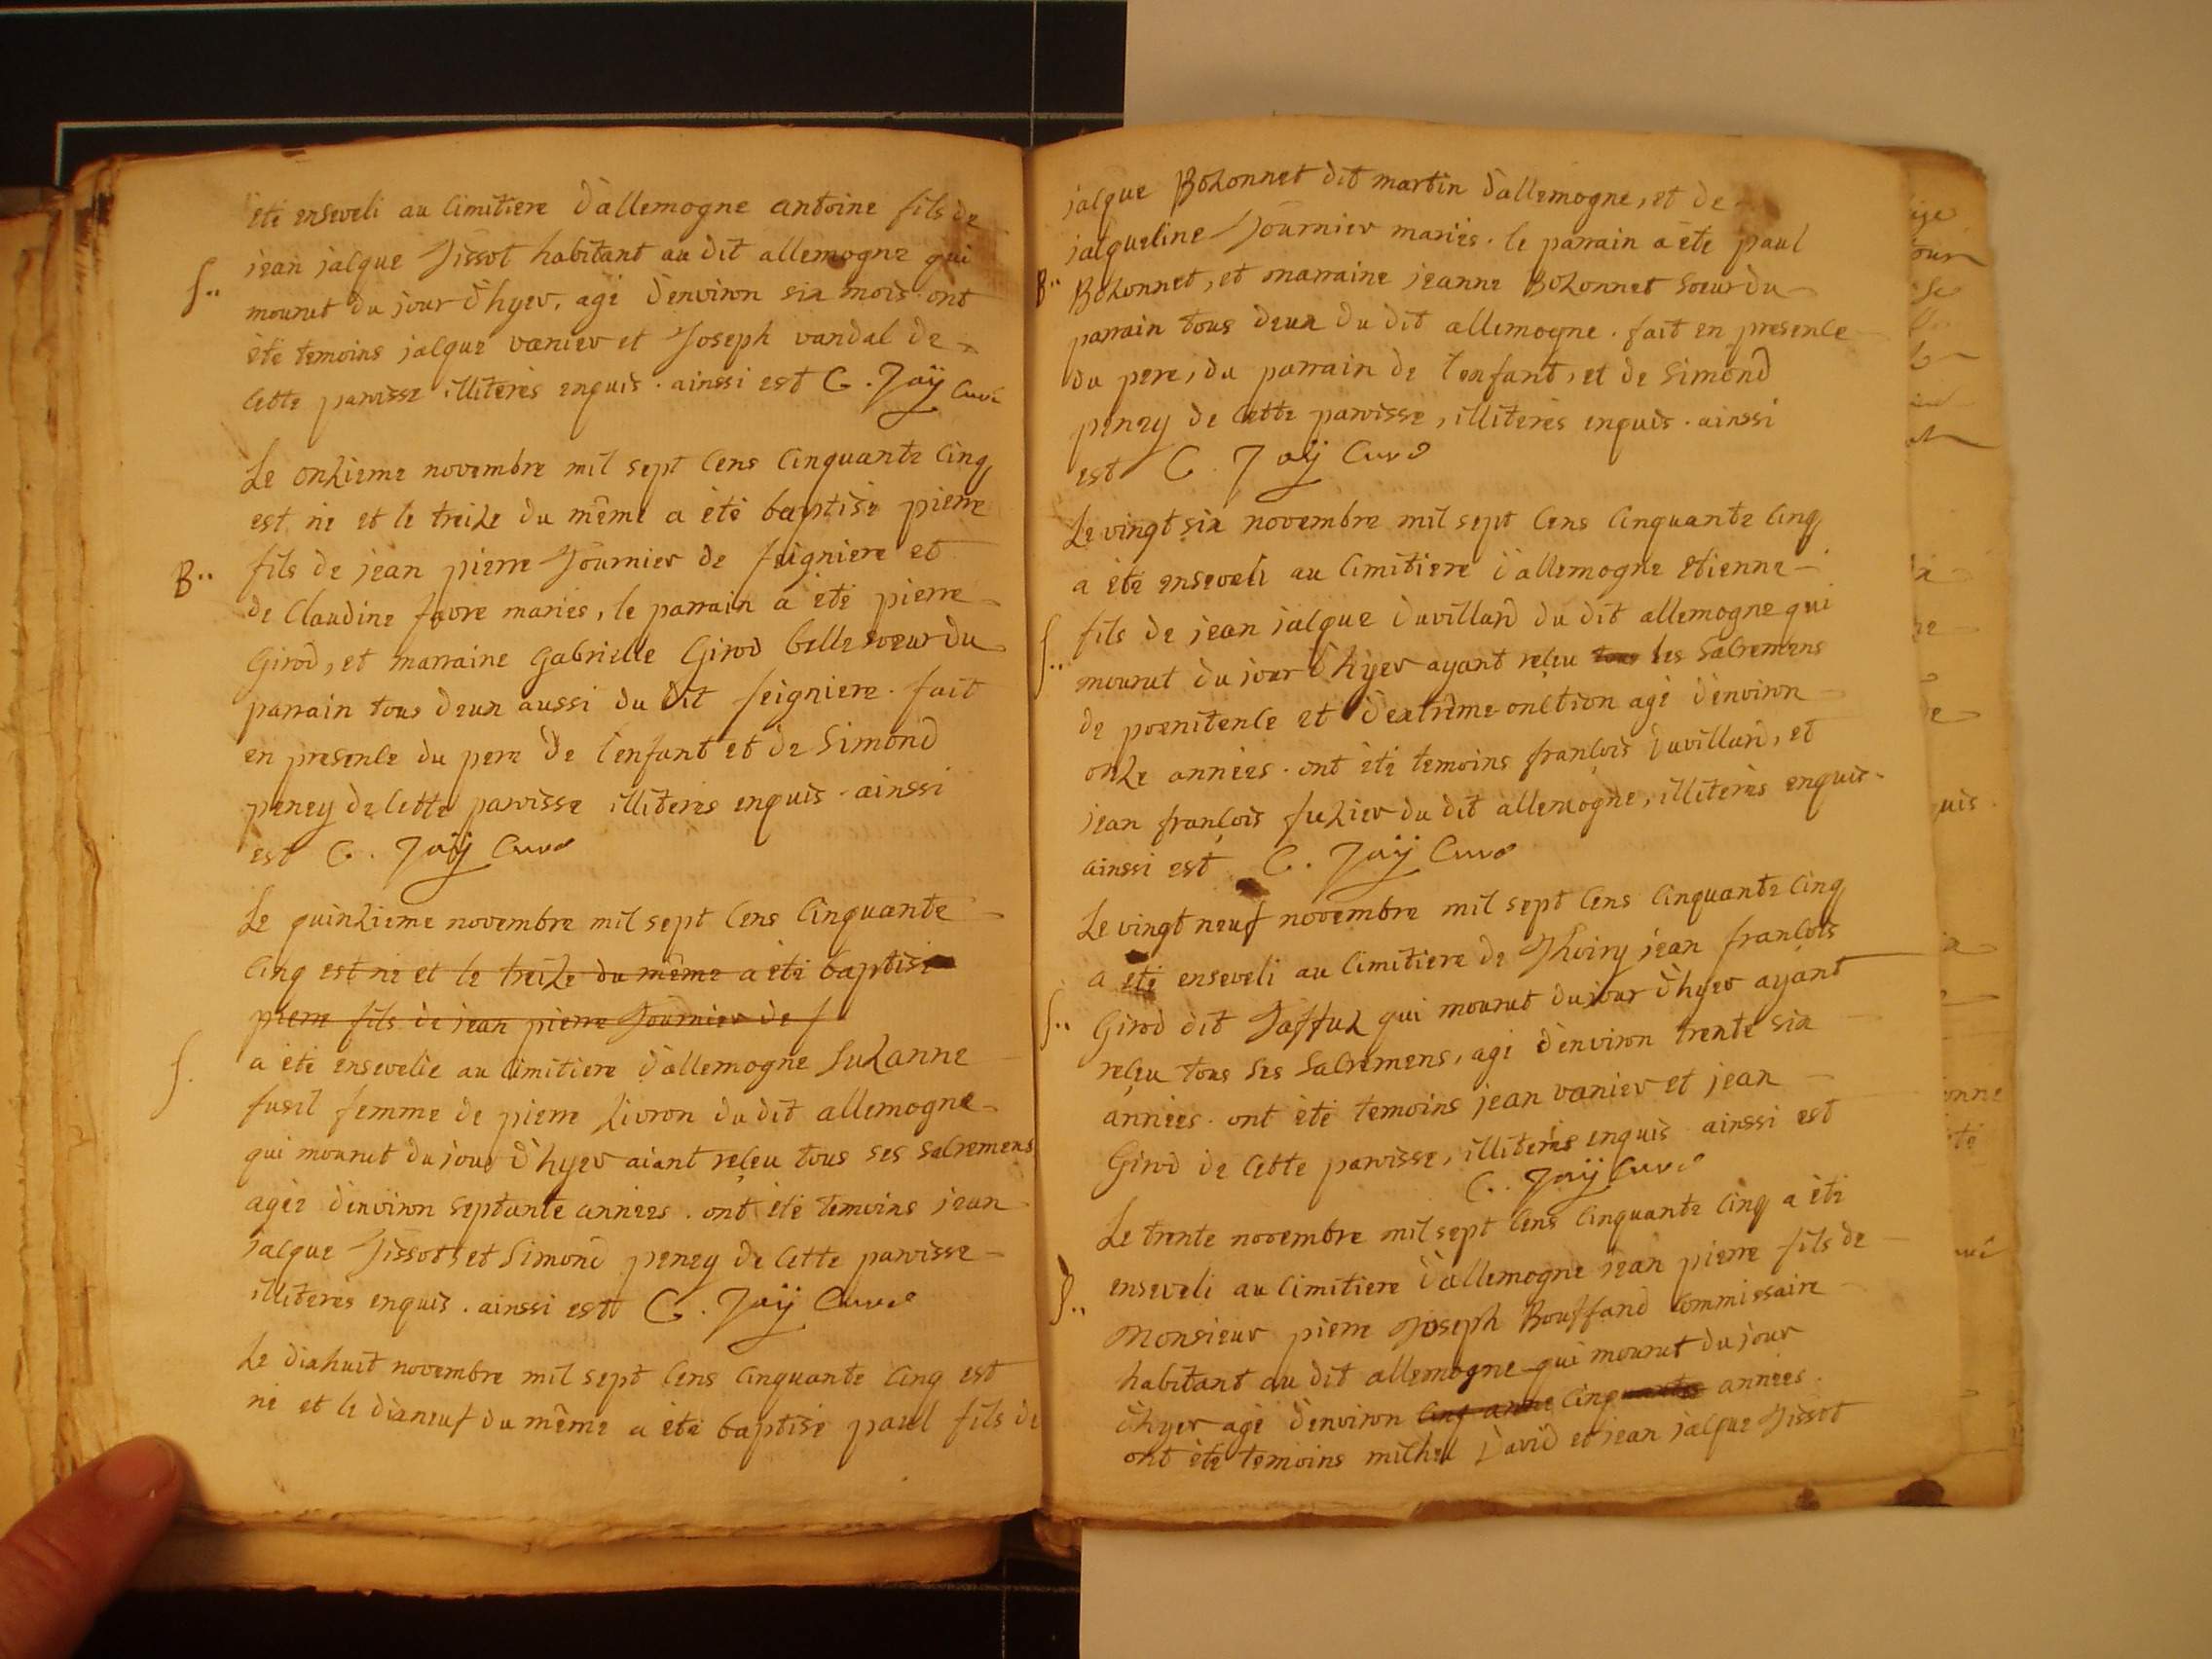 été enseveli au cimitiere d'allemogne antoine fils de
jean jacque Tissot habitant au dit allemogne qui
S..
mourut du jour d'hyer, agé d'environ six mois. ont
été temoins jacque vanier et Joseph vandal de
cette paroisse illiterés enquis. ainssi est C. Jaÿ Curé
Le onzieme novembre mil sept cens cinquante cinq
est né et le treize du même a été baptisé pierre
B..
fils de jean pierre Fournier de feigniere et
de Claudine favre mariés, le parrain a été pierre
Girod, et marraine Gabrielle Girod belle soeur du
parrain tous deux aussi du dit feigniere. fait
en presence du pere de l'enfant et de Simond
peney de cette paroisse illiterés enquis. ainssi
est C. Jaÿ Curé
Le quinzieme novembre mil sept cens cinquante
cinq est né et le treize du même a été baptisé
pierre fils de jean pierre Fournier de f
S.
a été ensevelie au cimitiere d'allemogne Suzanne
fusil femme de pierre Livron du dit allemogne
qui mourut du jour d'hyer aiant reçeu tous ses sacremens
agée d'environ septante années. ont été temoins jean
jacque Tissot et Simond peney de cette paroisse
illiterés enquis. ainssi est C. Jaÿ Curé
Le dixhuit novembre mil sept cens cinquante cinq est
né et le dixneuf du même a été baptisé paul fils de
jacque Bozonnet dit martin d'allemogne, et de
jacqueline Fournier mariés. le parrain a été paul
B..
Bozonnet, et marraine jeanne Bozonnet soeur du
parrain tous deux du dit allemogne. fait en presence
du pere, du parrain de l'enfant, et de Simond
peney de cette paroisse, illiterés enquis. ainssi
est C. Jaÿ Curé
Le vingt six novembre mil sept cens cinquante cinq
a été enseveli au cimitiere d'allemogne etienne
S..
fils de jean jacque duvillard du dit allemogne qui
mourut du jour d'hyer ayant reçeu tous les Sacremens
de poenitence et d'extrême-onction agé d'environ
onze années. ont été temoins françois duvillard, et
jean françois fuzier du dit allemogne, illiterés enquis.
ainssi est C. Jaÿ Curé
Le vingt neuf novembre mil sept cens cinquante cinq
a été enseveli au cimitiere de Thoiry jean françois
S..
Girod dit Jaffuz qui mourut du jour d'hyer ayant
reçeu tous ses Sacremens, agé d'environ trente six
années. ont été temoins jean vanier et jean
Girod de cette paroisse, illiterés enquis. ainssi est
C. Jaÿ Curé
Le trente novembre mil sept cens cinquante cinq a été
S..
enseveli au cimitiere d'allemogne jean pierre fils de
Monsieur pierre Joseph Bouffand Commissaire
habitant au dit allemogne qui mourut du jour
d'hyer agé d'environ cinq anne cinquante années.
ont été temoins michel David et jean jacque Tissot